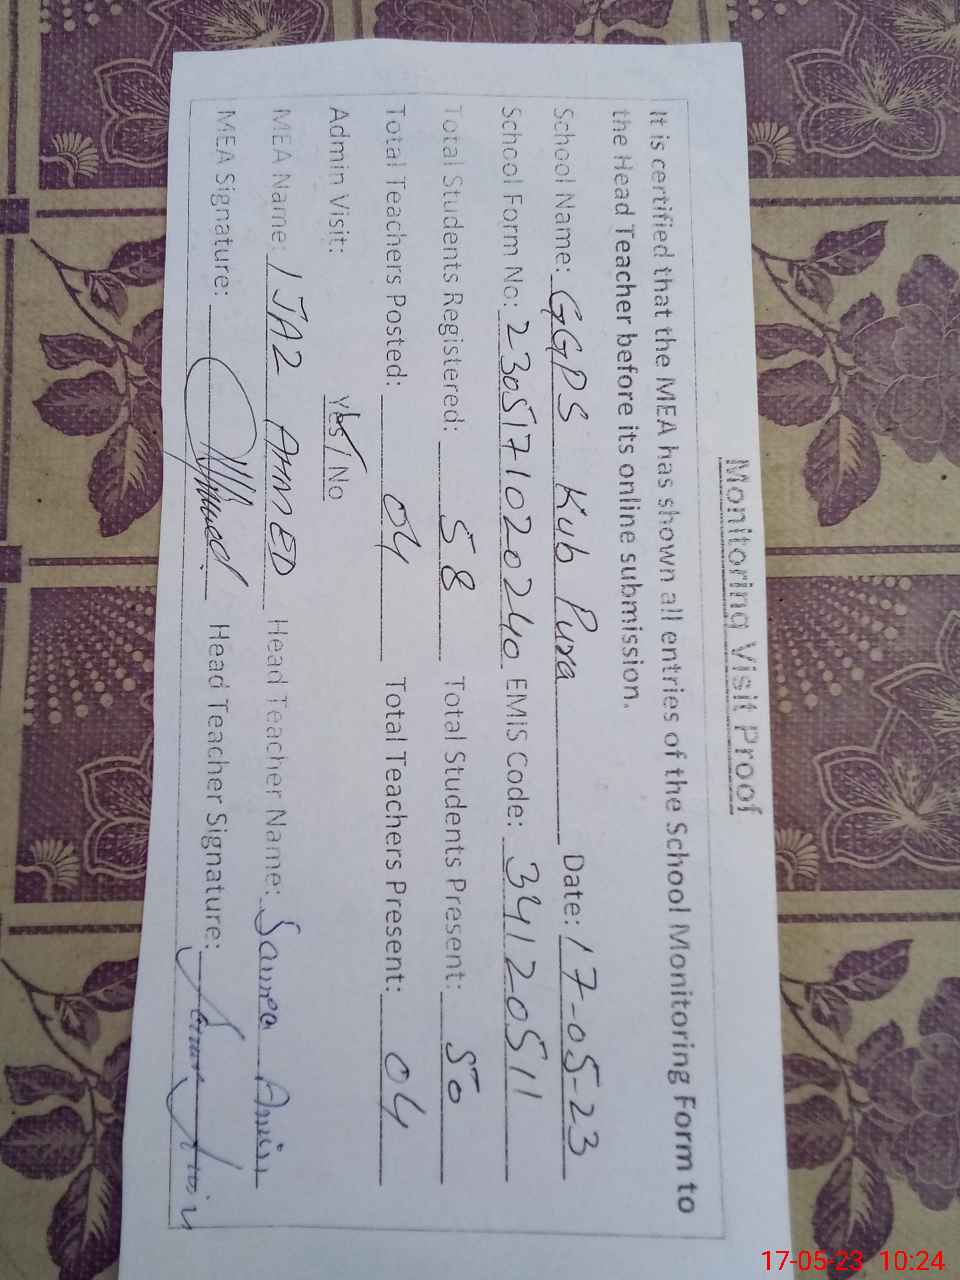 Monitoring Visit Proof
It is certified that the MEA has shown all entries of the School Monitoring Form to
the Head Teacher before its online submission.
School Name: GGPS Kub Pura Date: 17-05-23
School Form No: 2305171020240 EMIS Code: 34120511
Total Students Registered: 58 Total Students Present: 50
Total Teachers Posted: 04 Total Teachers Present: 04
Admin Visit: Yes / No
MEA Name: IJAZ AHMED Head Teacher Name: Samea Amin
MEA Signature: Ahmed Head Teacher Signature:
17-05-23 10:24